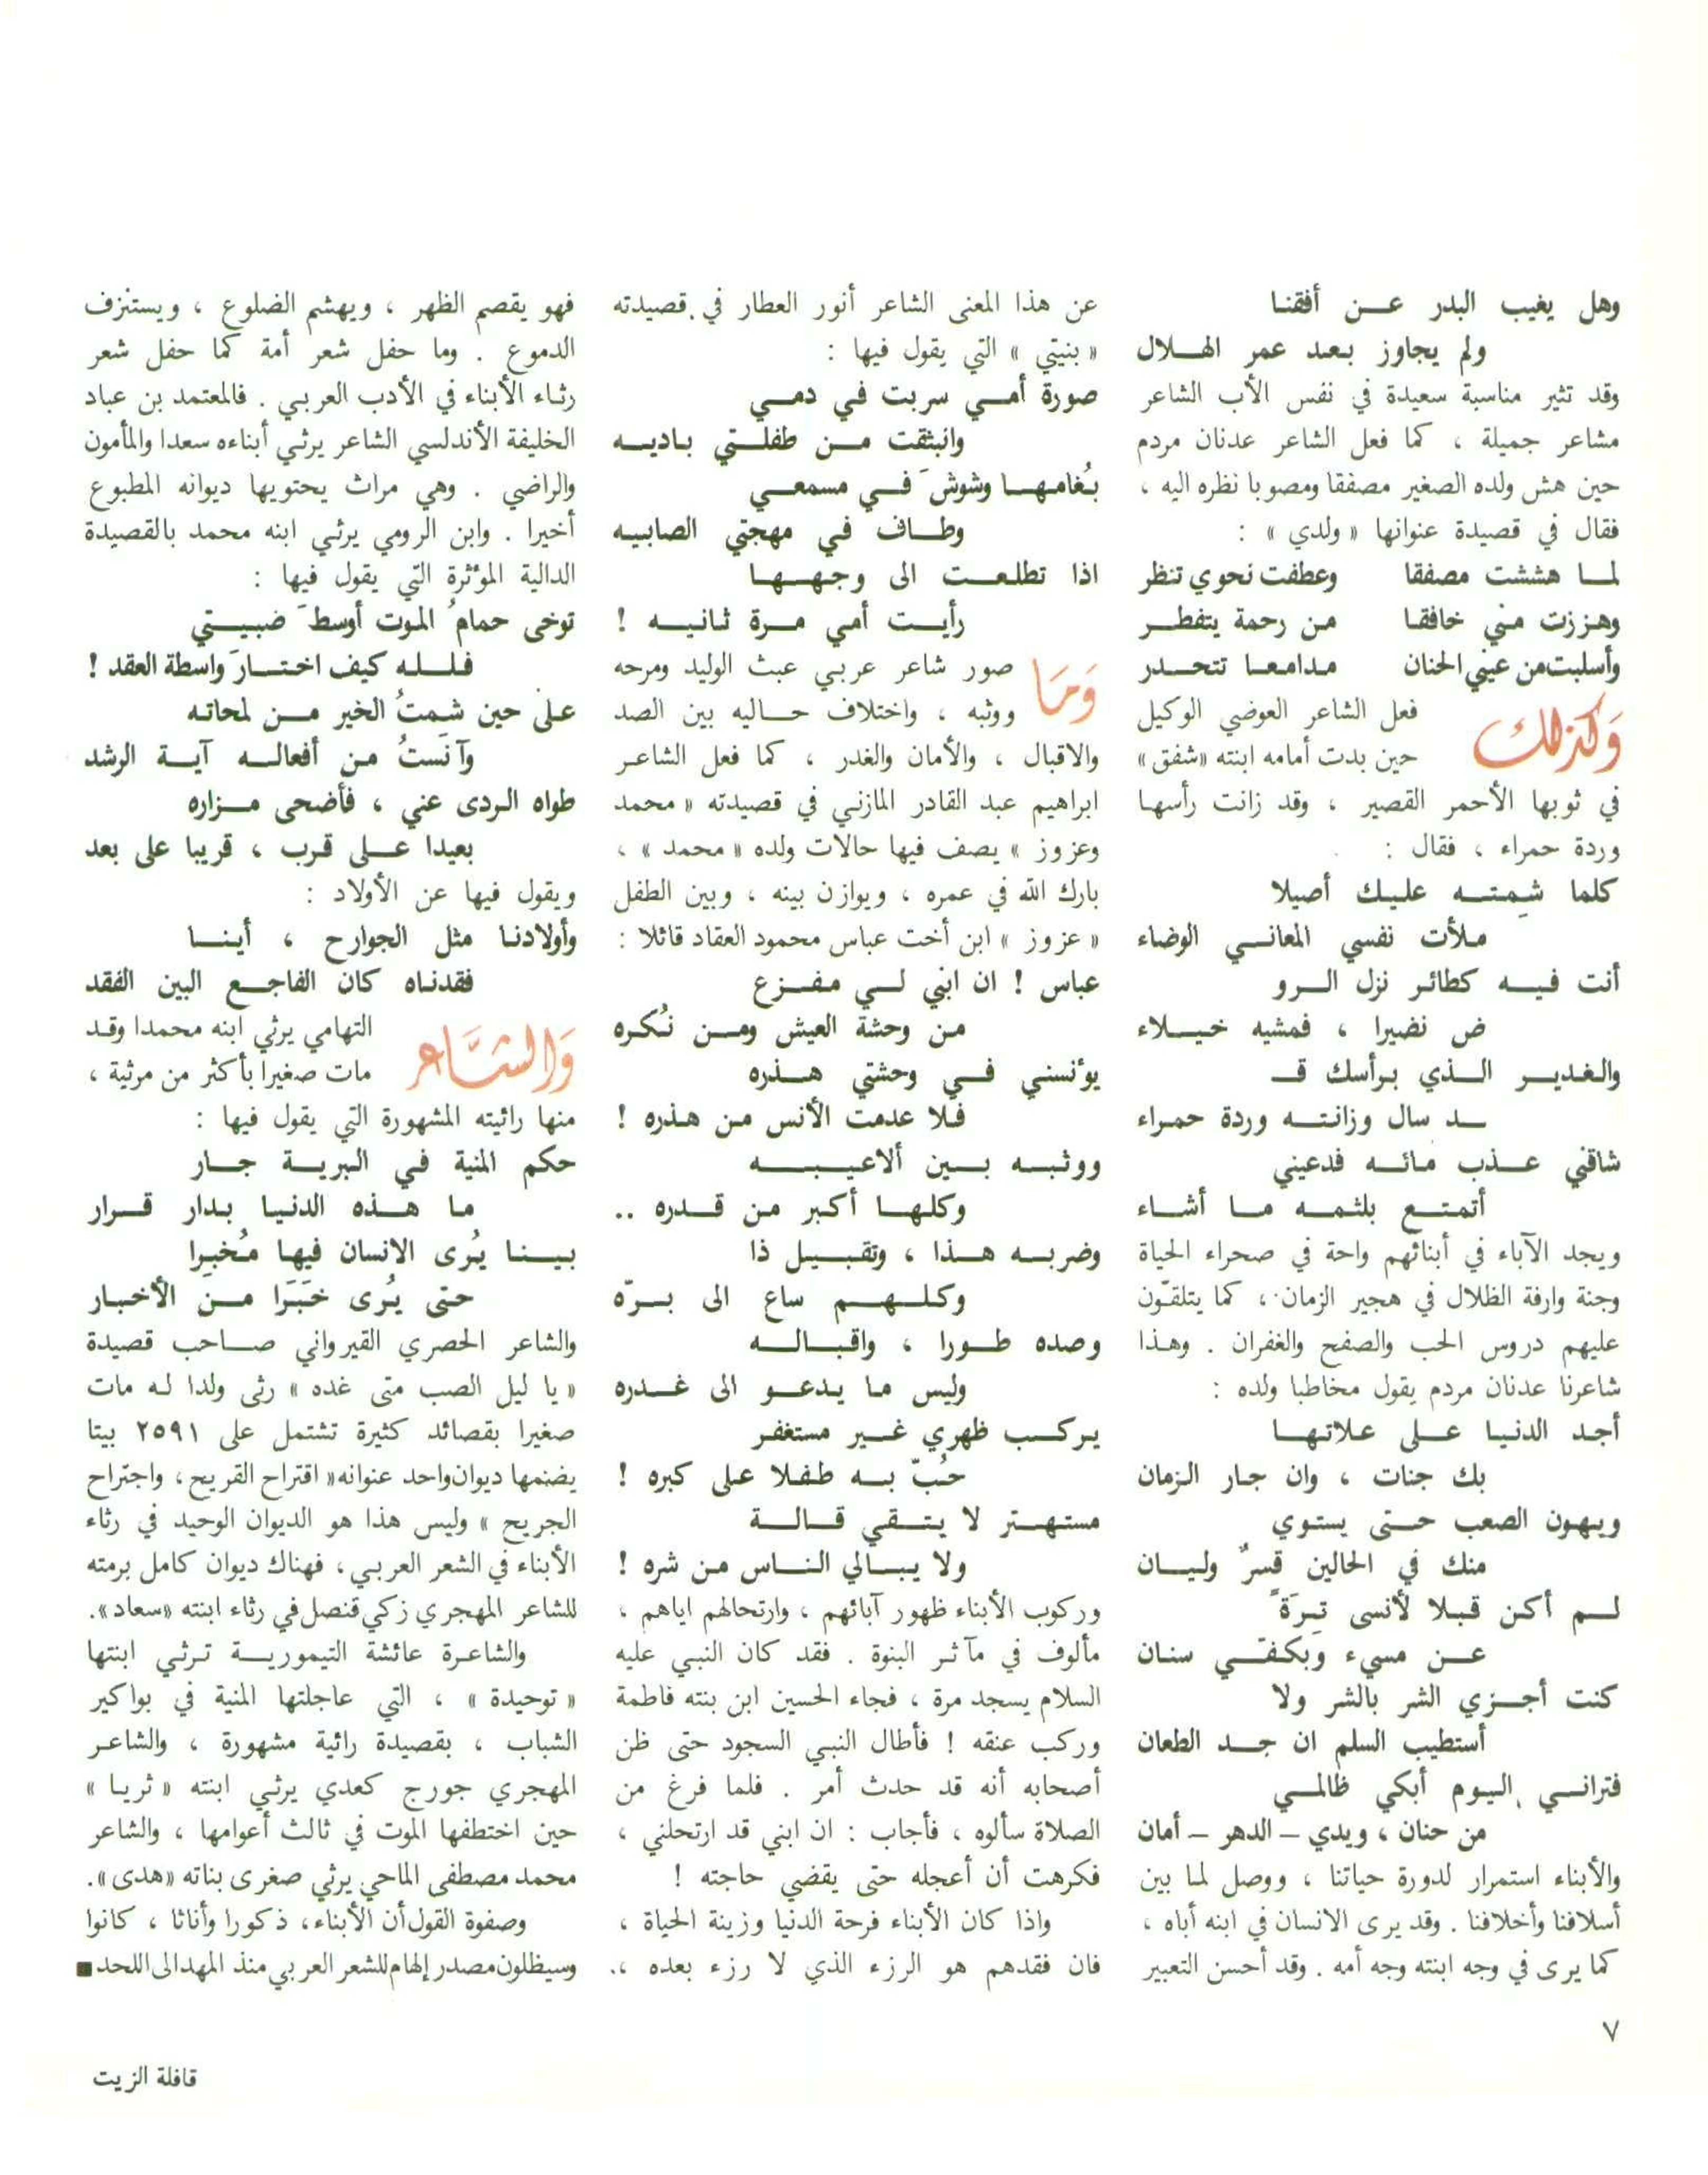 وهل يغيب البدر عن أفقنا
ولم يجاوز بعد عمر الهلال
وقد تثير مناسبة سعيدة في نفس الأب الشاعر
مشاعر جميلة ، كما فعل الشاعر عدنان مردم
حين هش ولده الصغير مصفقا ومصوبا نظره اليه ،
فقال في قصيدة عنوانها « ولدي » :
لما هششت مصفقا وعطفت نحوي تنظر
وهززت مني خافقا من رحمة يتفطر
وأسلبت من عيني الحنان مدامعا تتحدر
وَكذلك فعل الشاعر العوضي الوكيل
حين بدت أمامه ابنته «شفق»
في ثوبها الأحمر القصير ، وقد زانت رأسها
وردة حمراء ، فقال :
كلما شِمته عليك أصيلا
ملأت نفسي المعاني الوضاء
أنت فيه كطائر نزل الرو
ض نضيرا ، فمشيه خيلاء
والغدير الذي برأسك قـ
ـد سال وزانته وردة حمراء
شاقني عذب مائه فدعيني
أتمتع بلثمه ما أشاء
ويجد الآباء في أبنائهم واحة في صحراء الحياة
وجنة وارفة الظلال في هجير الزمان ، كما يتلقّون
عليهم دروس الحب والصفح والغفران . وهذا
شاعرنا عدنان مردم يقول مخاطبا ولده :
أجد الدنيا على علاتها
بك جنات ، وان جار الزمان
ويهون الصعب حتى يستوي
منك في الحالين قسرٌ وليان
لم أكن قبلا لأنسى تِرَةً
عن مسيء وبكفّي سنان
كنت أجزي الشر بالشر ولا
أستطيب السلم ان جد الطعان
فتراني اليوم أبكي ظالمي
من حنان ، ويدي – الدهر – أمان
والأبناء استمرار لدورة حياتنا ، ووصل لما بين
أسلافنا وأخلافنا . وقد يرى الانسان في ابنه أباه ،
كما يرى في وجه ابنته وجه أمه . وقد أحسن التعبير
عن هذا المعنى الشاعر أنور العطار في قصيدته
« بنيتي » التي يقول فيها :
صورة أمي سربت في دمي
وانبثقت من طفلتي باديه
بُغامها وشوشَ في مسمعي
وطاف في مهجتي الصابيه
اذا تطلعت الى وجهها
رأيت أمي مرة ثانيه !
وَمَا صور شاعر عربي عبث الوليد ومرحه
ووثبه ، واختلاف حاليه بين الصد
والاقبال ، والأمان والغدر ، كما فعل الشاعر
ابراهيم عبد القادر المازني في قصيدته « محمد
وعزوز » يصف فيها حالات ولده « محمد » ،
بارك الله في عمره ، ويوازن بينه ، وبين الطفل
« عزوز » ابن أخت عباس محمود العقاد قائلا :
عباس ! ان ابني لي مفزع
من وحشة العيش ومن نُكره
يؤنسني في وحشتي هذره
فلا عدمت الأنس من هذره !
ووثبه بين ألاعيبه
وكلها أكبر من قدره ..
وضربه هذا ، وتقبيل ذا
وكلهم ساع الى برّه
وصده طورا ، واقباله
وليس ما يدعو الى غدره
يركب ظهري غير مستغفر
حُبّ به طفلا على كبره !
مستهتر لا يتقي قالة
ولا يبالي الناس من شره !
وركوب الأبناء ظهور آبائهم ، وارتحالهم اياهم ،
مألوف في مآثر البنوة . فقد كان النبي عليه
السلام يسجد مرة ، فجاء الحسين ابن بنته فاطمة
وركب عنقه ! فأطال النبي السجود حتى ظن
أصحابه أنه قد حدث أمر . فلما فرغ من
الصلاة سألوه ، فأجاب : ان ابني قد ارتحلني ،
فكرهت أن أعجله حتى يقضي حاجته !
واذا كان الأبناء فرحة الدنيا وزينة الحياة ،
فان فقدهم هو الرزء الذي لا رزء بعده ،.
فهو يقصم الظهر ، ويهشم الضلوع ، ويستنزف
الدموع . وما حفل شعر أمة كما حفل شعر
رثاء الأبناء في الأدب العربي . فالمعتمد بن عباد
الخليفة الأندلسي الشاعر يرثي أبناءه سعدا والمأمون
والراضي . وهي مراث يحتويها ديوانه المطبوع
أخيرا . وابن الرومي يرثي ابنه محمد بالقصيدة
الدالية المؤثرة التي يقول فيها :
توخى حمامُ الموت أوسطَ ضبيتي
فلله كيف اختارَ واسطة العقد !
على حين شمتُ الخير من لمحاته
وآنَستُ من أفعاله آية الرشد
طواه الردى عني ، فأضحى مزاره
بعيدا على قرب ، قريبا على بعد
ويقول فيها عن الأولاد :
وأولادنا مثل الجوارح ، أينا
فقدناه كان الفاجع البين الفقد
وَالشَّاعر التهامي يرثي ابنه محمدا وقد
مات صغيرا بأكثر من مرثية ،
منها رائيته المشهورة التي يقول فيها :
حكم المنية في البرية جار
ما هذه الدنيا بدار قرار
بينا يُرى الانسان فيها مُخبِرا
حتى يُرى خبَرَا من الأخبار
والشاعر الحصري القيرواني صاحب قصيدة
« يا ليل الصب متى غده » رثى ولدا له مات
صغيرا بقصائد كثيرة تشتمل على ٢٥٩١ بيتا
يضنمها ديوان واحد عنوانه « اقتراح القريح ، واجتراح
الجريح » وليس هذا هو الديوان الوحيد في رثاء
الأبناء في الشعر العربي ، فهناك ديوان كامل برمته
للشاعر المهجري زكي قنصل في رثاء ابنته «سعاد».
والشاعرة عائشة التيمورية ترثي ابنتها
« توحيدة » ، التي عاجلتها المنية في بواكير
الشباب ، بقصيدة رائية مشهورة ، والشاعر
المهجري جورج كعدي يرثي ابنته « ثريا »
حين اختطفها الموت في ثالث أعوامها ، والشاعر
محمد مصطفى الماحي يرثي صغرى بناته «هدى».
وصفوة القول أن الأبناء، ذكورا وأناثا ، كانوا
وسيظلون مصدر إلهام للشعر العربي منذ المهد الى اللحد ■
٧
قافلة الزيت